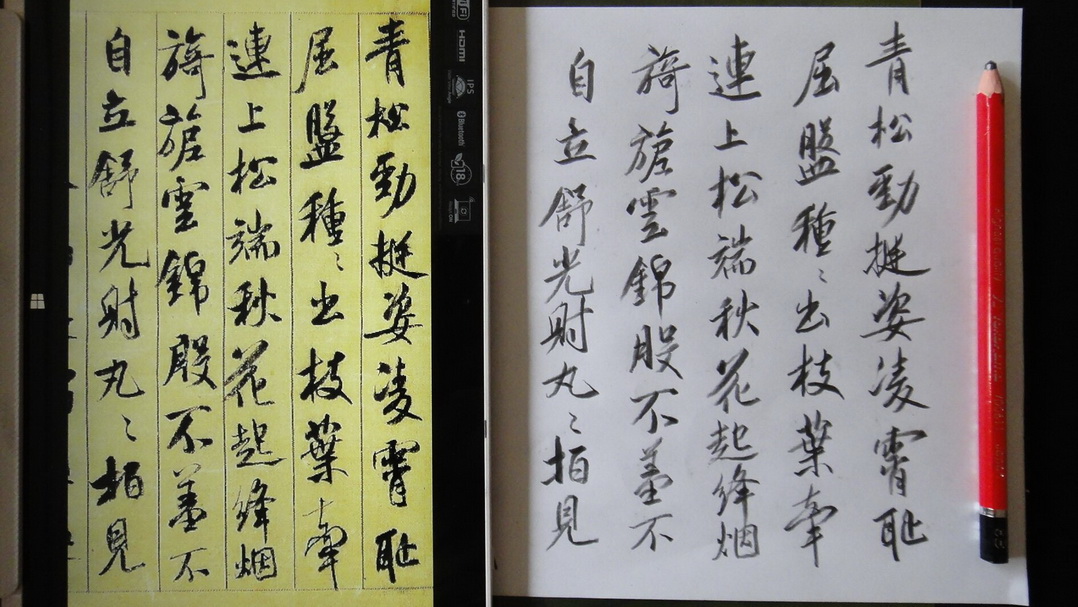 青松勁挺姿凌霄恥
屈盤種〻出枝葉牽
連上松端秋花起絳烟
旖旎雲錦殷不羞不
自立舒光射丸〻柏見
HDMI
IPS
Bluetooth
青松勁挺姿凌霄恥
屈盤種〻出枝葉牽
連上松端秋花起絳烟
旖旎雲錦殷不羞不
自立舒光射丸〻柏見